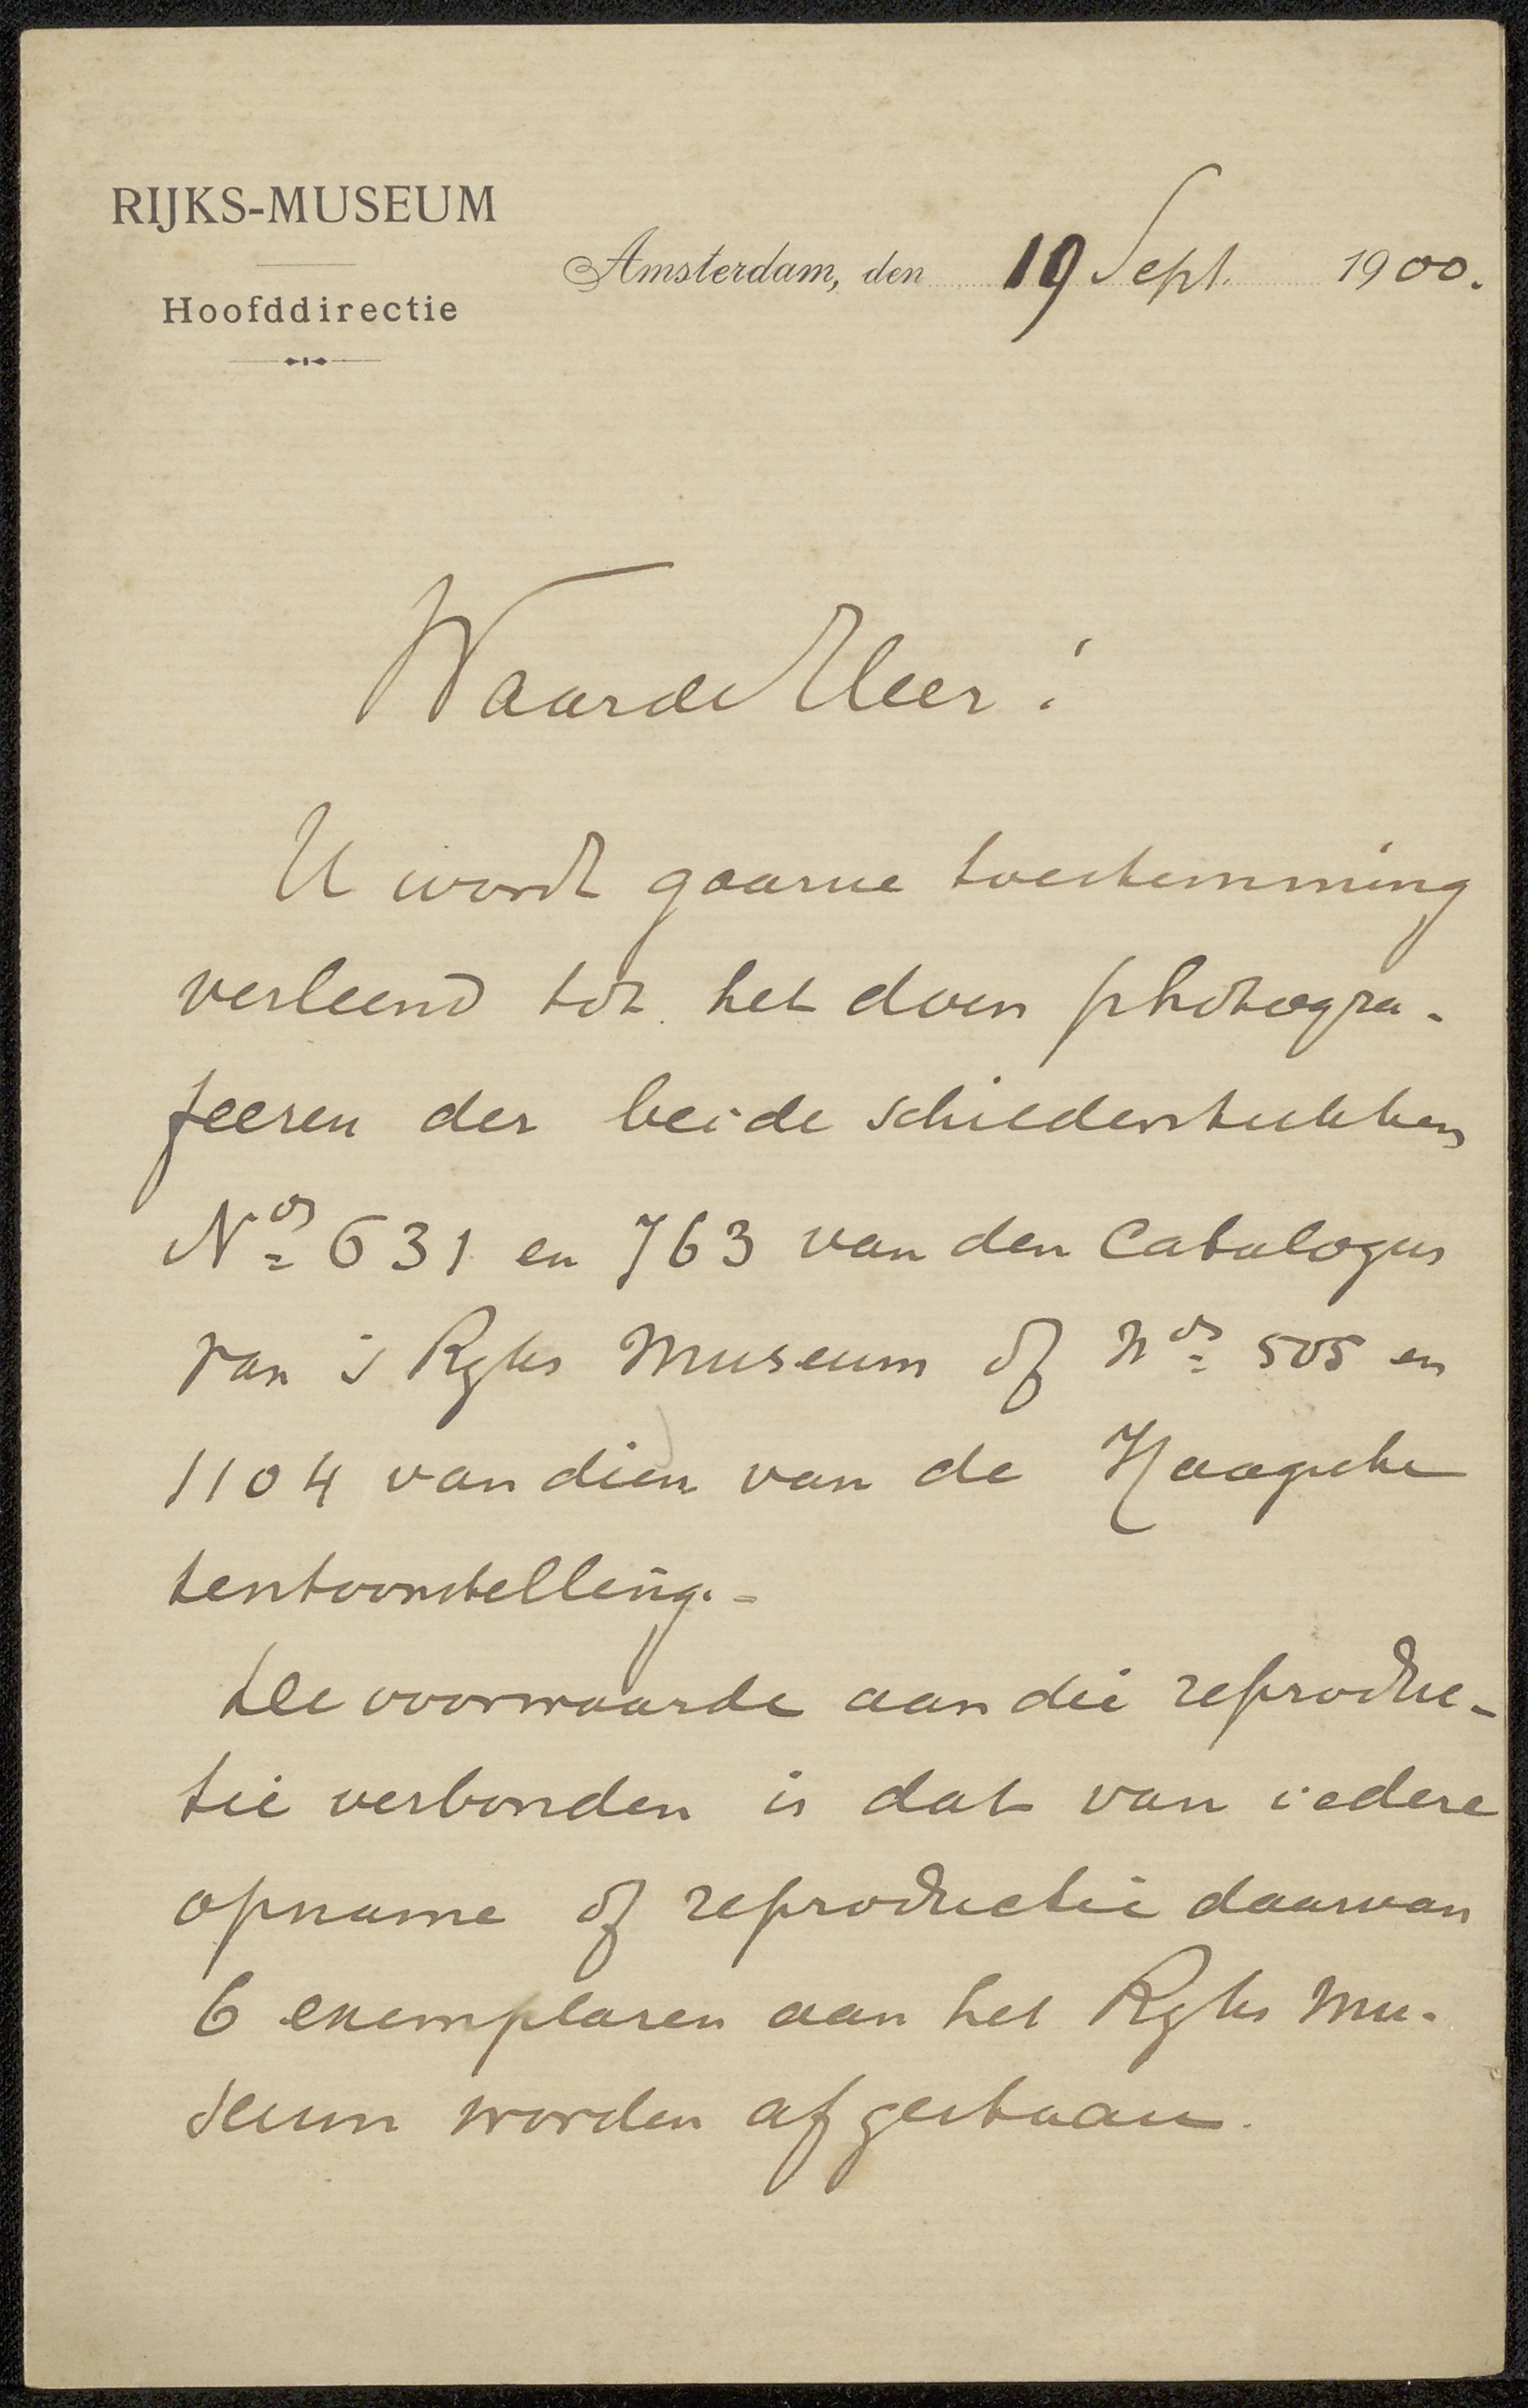 RIJKS-MUSEUM
Hoofddirectie
Amsterdam, den 19 Sept. 1900.
Waarde Heer!
U wordt gaarne toestemming
verleend tot het doen photogra-
feeren der beide schilderstukken
Nos 631 en 763 van den Catalogus
van 's Ryks Museum of Nos 505 en
1104 van dien van de Haagsche
tentoonstelling.-
De voorwaarde aan die reproduc-
tie verbonden is dat van iedere
opname of reproductie daarvan
6 exemplaren aan het Ryks Mu-
seum worden afgestaan.